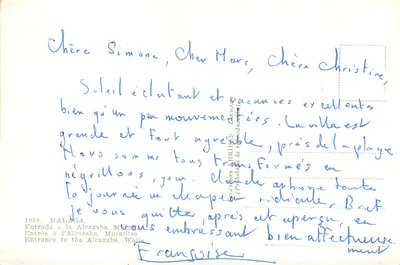 Chère Simone, Cher Marc, Chère Christine,
Soleil éclatant et vacances excellentes
bien qu'un peu mouvementées. La villa est
grande et fort agréable, près de la plage
Nous sommes tous transformés en
négrillons, Claude arbore toute
la journée un chapeau ridicule. Bref
je vous quitte, après cet aperçu, en
vous embrassant bien affectueuse
ment
Françoise
1039. MALAGA.
Entrada a la Alcazaba,
Entrée à l'Alcazaba, Murailles.
Entrance to the Alcazaba, Walls